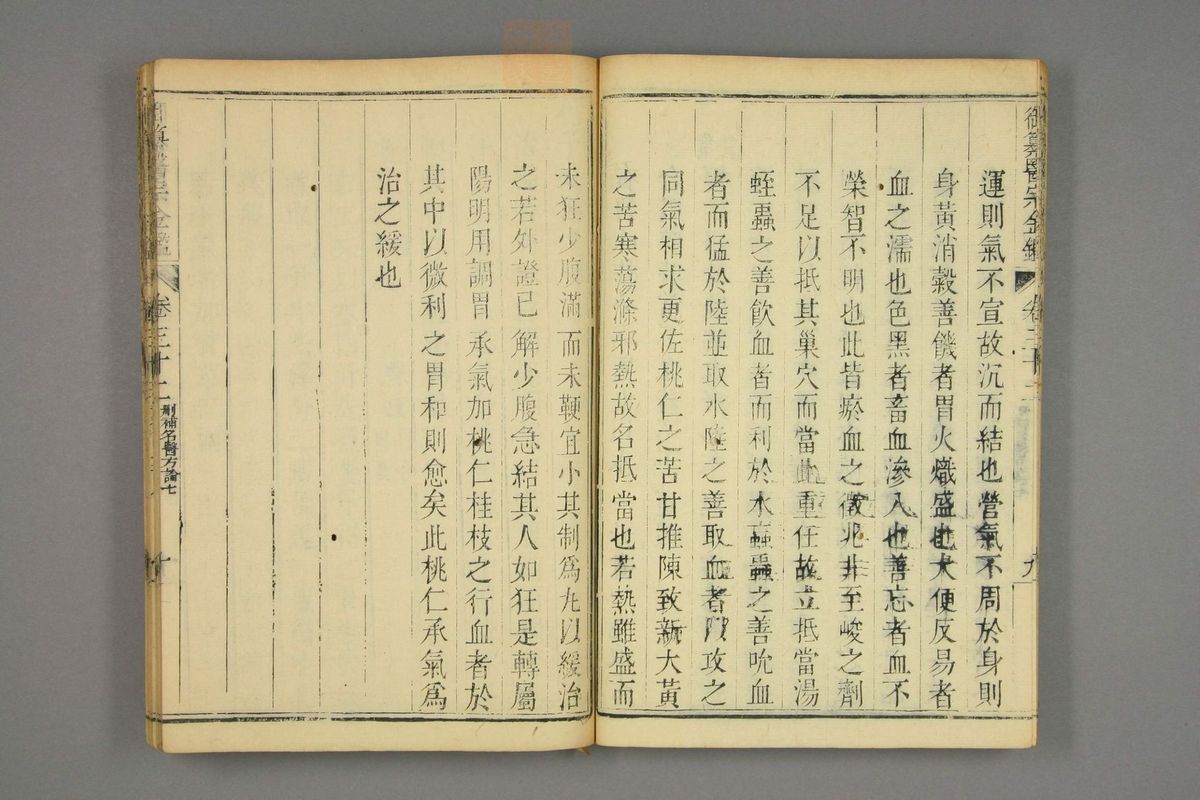 御纂醫宗金鑑
卷三十二
九
運則氣不宣故沉而結也營氣不周於身則
身黃消穀善饑者胃火熾盛也大便反易者
血之濡也色黑者畜血滲入也善忘者血不
榮智不明也此皆瘀血之徵兆非至峻之劑
不足以抵其巢穴而當此重任故立抵當湯
蛭蟲之善飲血者而利於水蝱蟲之善吮血
者而猛於陸並取水陸之善取血者以攻之
同氣相求更佐桃仁之苦甘推陳致新大黃
之苦寒蕩滌邪熱故名抵當也若熱雖盛而
未狂少腹滿而未鞕宜小其制爲丸以緩治
之若外證已解少腹急結其人如狂是轉屬
陽明用調胃承氣加桃仁桂枝之行血者於
其中以微利之胃和則愈矣此桃仁承氣爲
治之緩也
卷三十二
刪補名醫方論七
十